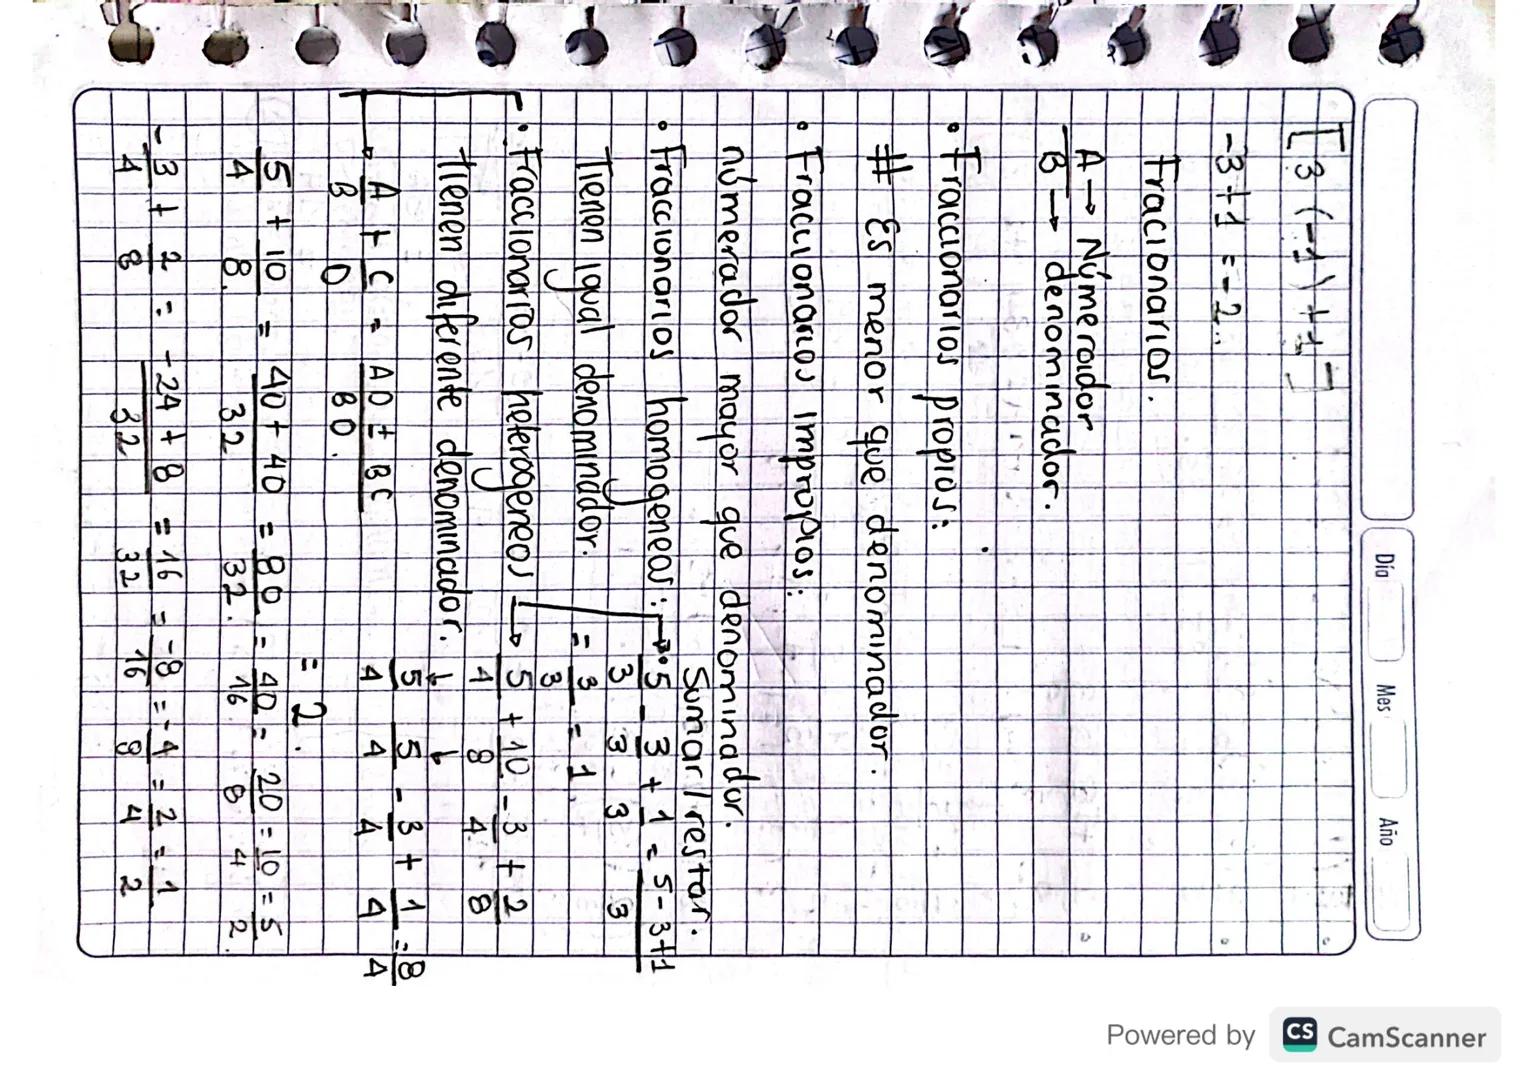 Día Mes Año
[3(-1)+1]
-3+1 = -2.
Fracionarios.
A → Númerador
B → denominador.
• Fraccionarios propios:
# Es menor que denominador.
• Fraccionarios Impropios:
númerador mayor que denominador.
Sumar/restar.
• Fraccionarios homogeneos: → • 5/3 - 3/3 + 1/3 = 5-3+1/3
Tienen Igual denominador. = 3/3 = 1
• Fraccionarios heterogeneos → 5/4 + 10/8 - 3/4 + 2/8
Tienen diferente denominador. ↓ ↓
5/4 5/4 - 3/4 + 1/4 = 8/4
→ A/B + C/D = AD ± BC/BD.
= 2.
5/4 + 10/8 = 40+40/32 = 80/32 = 40/16 = 20/8 = 10/4 = 5/2
-3/4 + 2/8 = -24+8/32 = 16/32 = -8/16 = -4/8 = 2/4 = 1/2
Powered by CS CamScanner